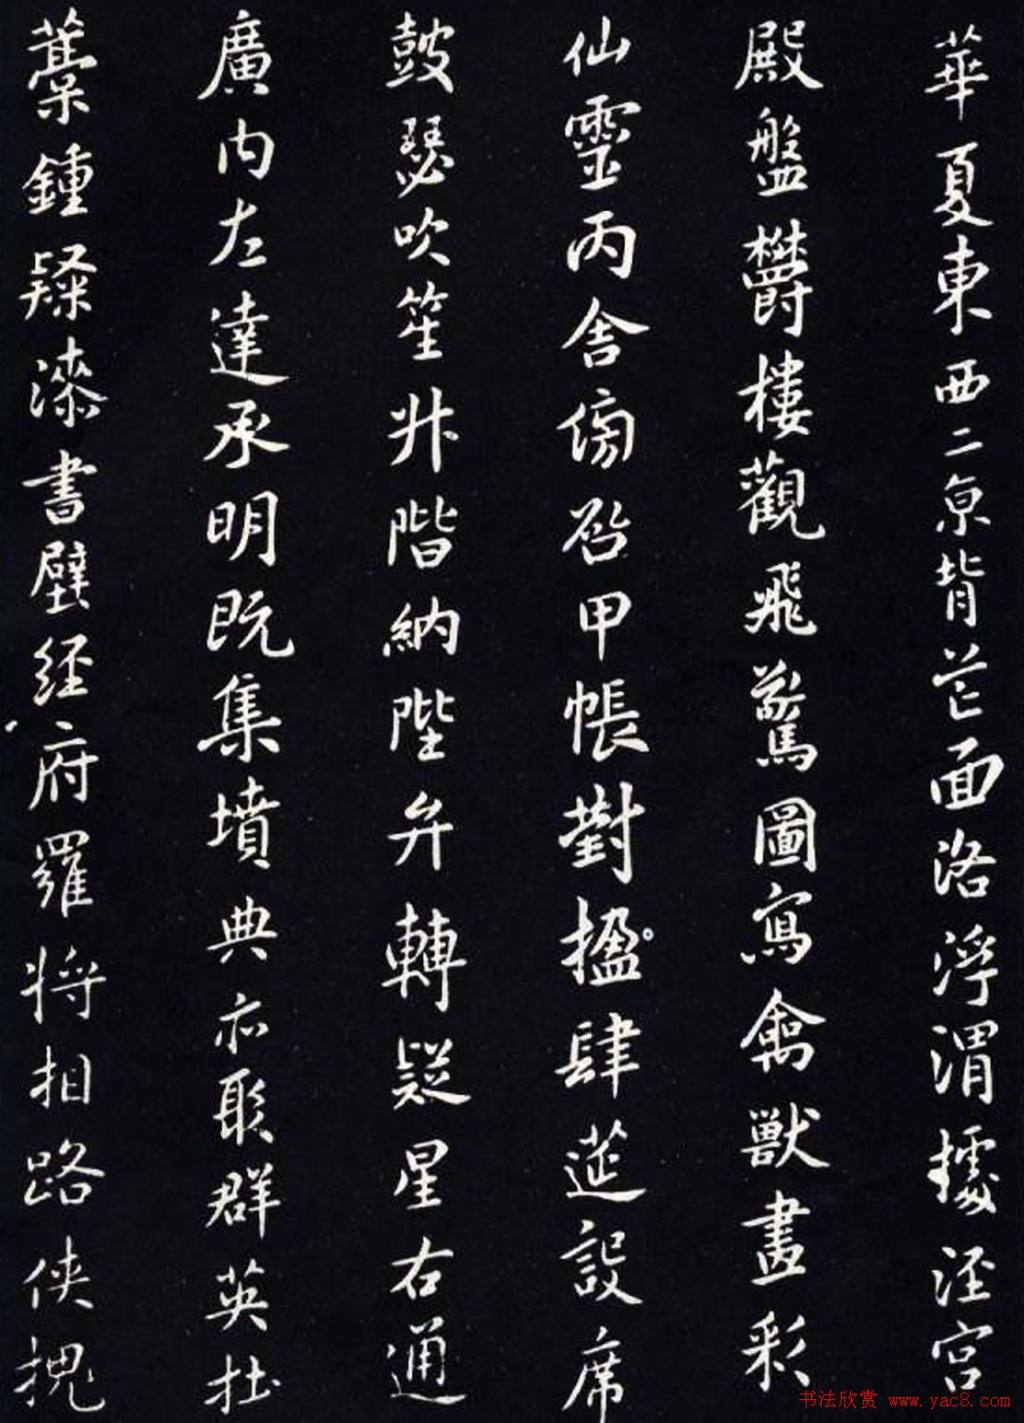 華夏東西二京背芒面洛浮渭據涇宮
殿盤欝樓觀飛驚圖寫禽獸畫彩
仙靈丙舍傍啓甲帳對楹肆莚設席
鼓瑟吹笙升階納陛弁轉疑星右通
廣內左達承明既集墳典亦聚群英杜
藁鍾隸漆書壁經府羅將相路俠槐
书法欣赏 www.yac8.com